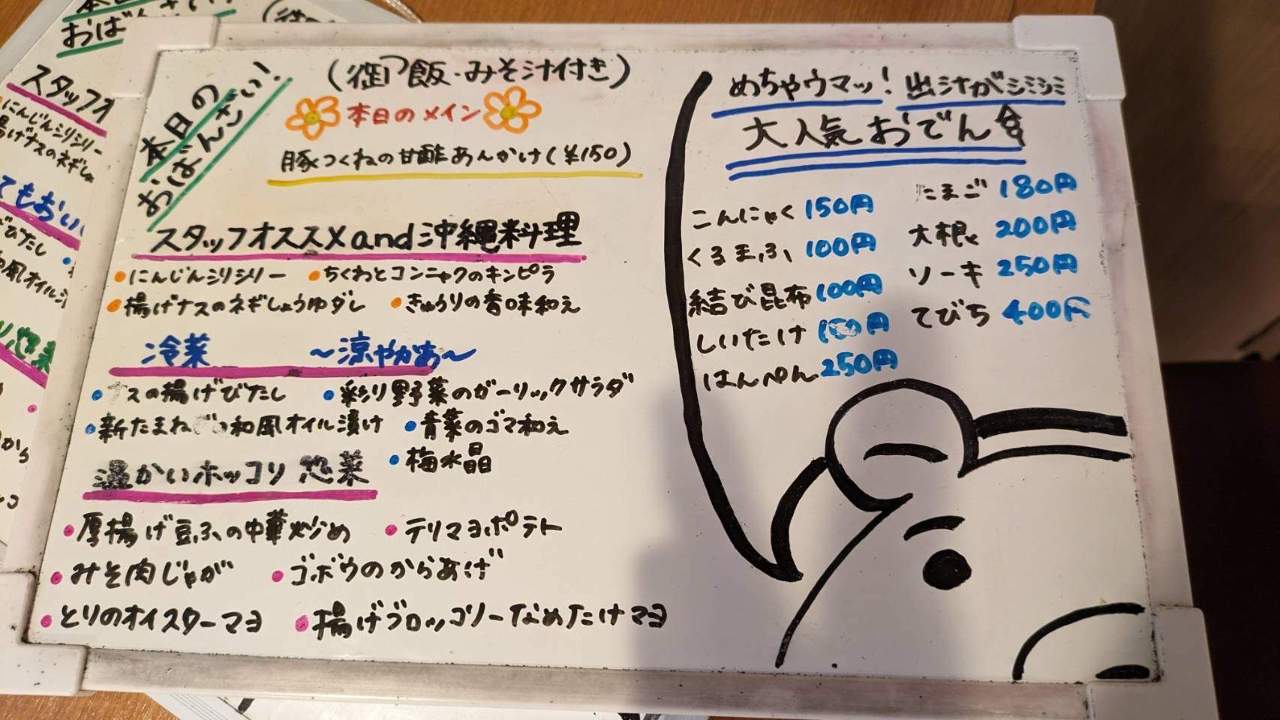 本日の
おばんざい!
(御飯・みそ汁付き)
本日のメイン
豚つくねの甘酢あんかけ(¥150)
スタッフオススメand沖縄料理
・にんじんシリシリー ・ちくわとコンニャクのキンピラ
・揚げナスのネギしょうゆダレ ・きゅうりの香味和え
冷菜 〜涼やかぁ〜
・ナスの揚げびたし ・彩り野菜のガーリックサラダ
・新たまねぎの和風オイル漬け ・青菜のゴマ和え
・梅水晶
温かいホッコリ惣菜
・厚揚げ豆ふの中華炒め ・テリマヨポテト
・みそ肉じゃが ・ゴボウのからあげ
・とりのオイスターマヨ ・揚げブロッコリーなめたけマヨ
めちゃウマッ!出汁がシミシミ
大人気おでん
こんにゃく 150円
くるまふ 100円
結び昆布 100円
しいたけ 150円
はんぺん 250円
たまご 180円
大根 200円
ソーキ 250円
てびち 400円
本日の
おば
スタッフオ
にんじんシリシリー
揚げナスのネギしょ
てもおい
びたし
和風オイル
惣菜
から